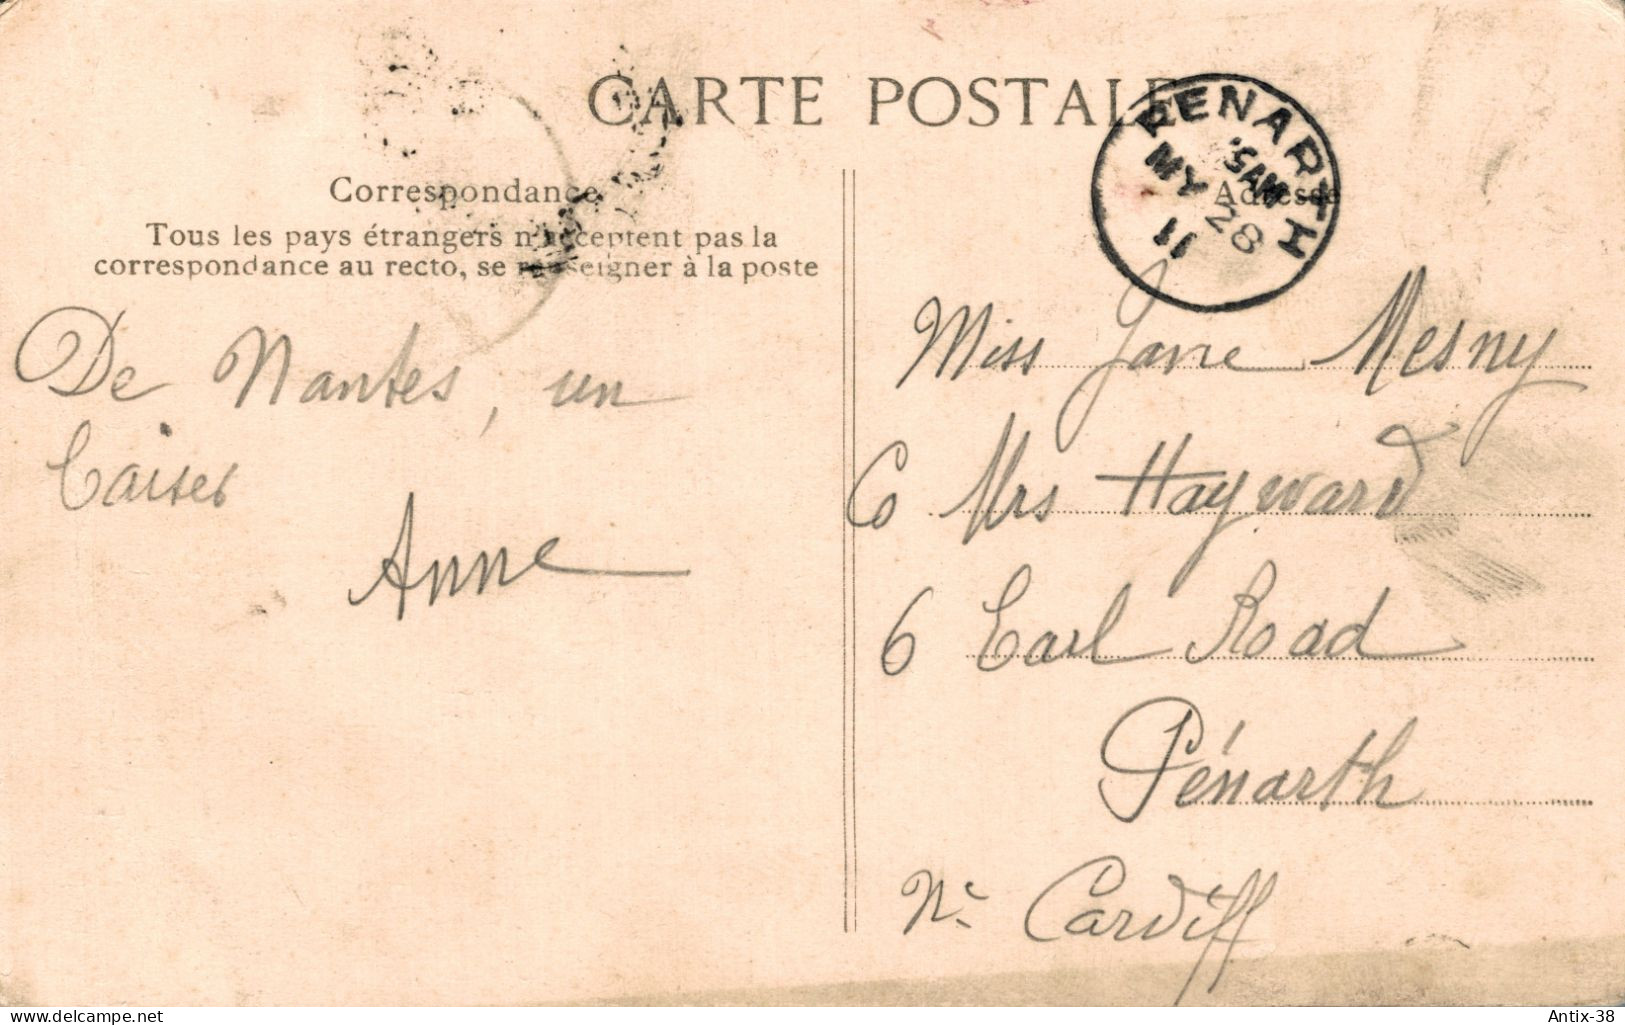 CARTE POSTALE
Correspondance
Tous les pays étrangers n'acceptent pas la
correspondance au recto, se renseigner à la poste
De Nantes, un
baiser
Anne
PENARTH
5 AM
MY 28
11
Adresse
Miss Jane Mesny
C/o Mrs Hayward
6 Earl Road
Pénarth
Nr Cardiff
www.delcampe.net
Antix-38